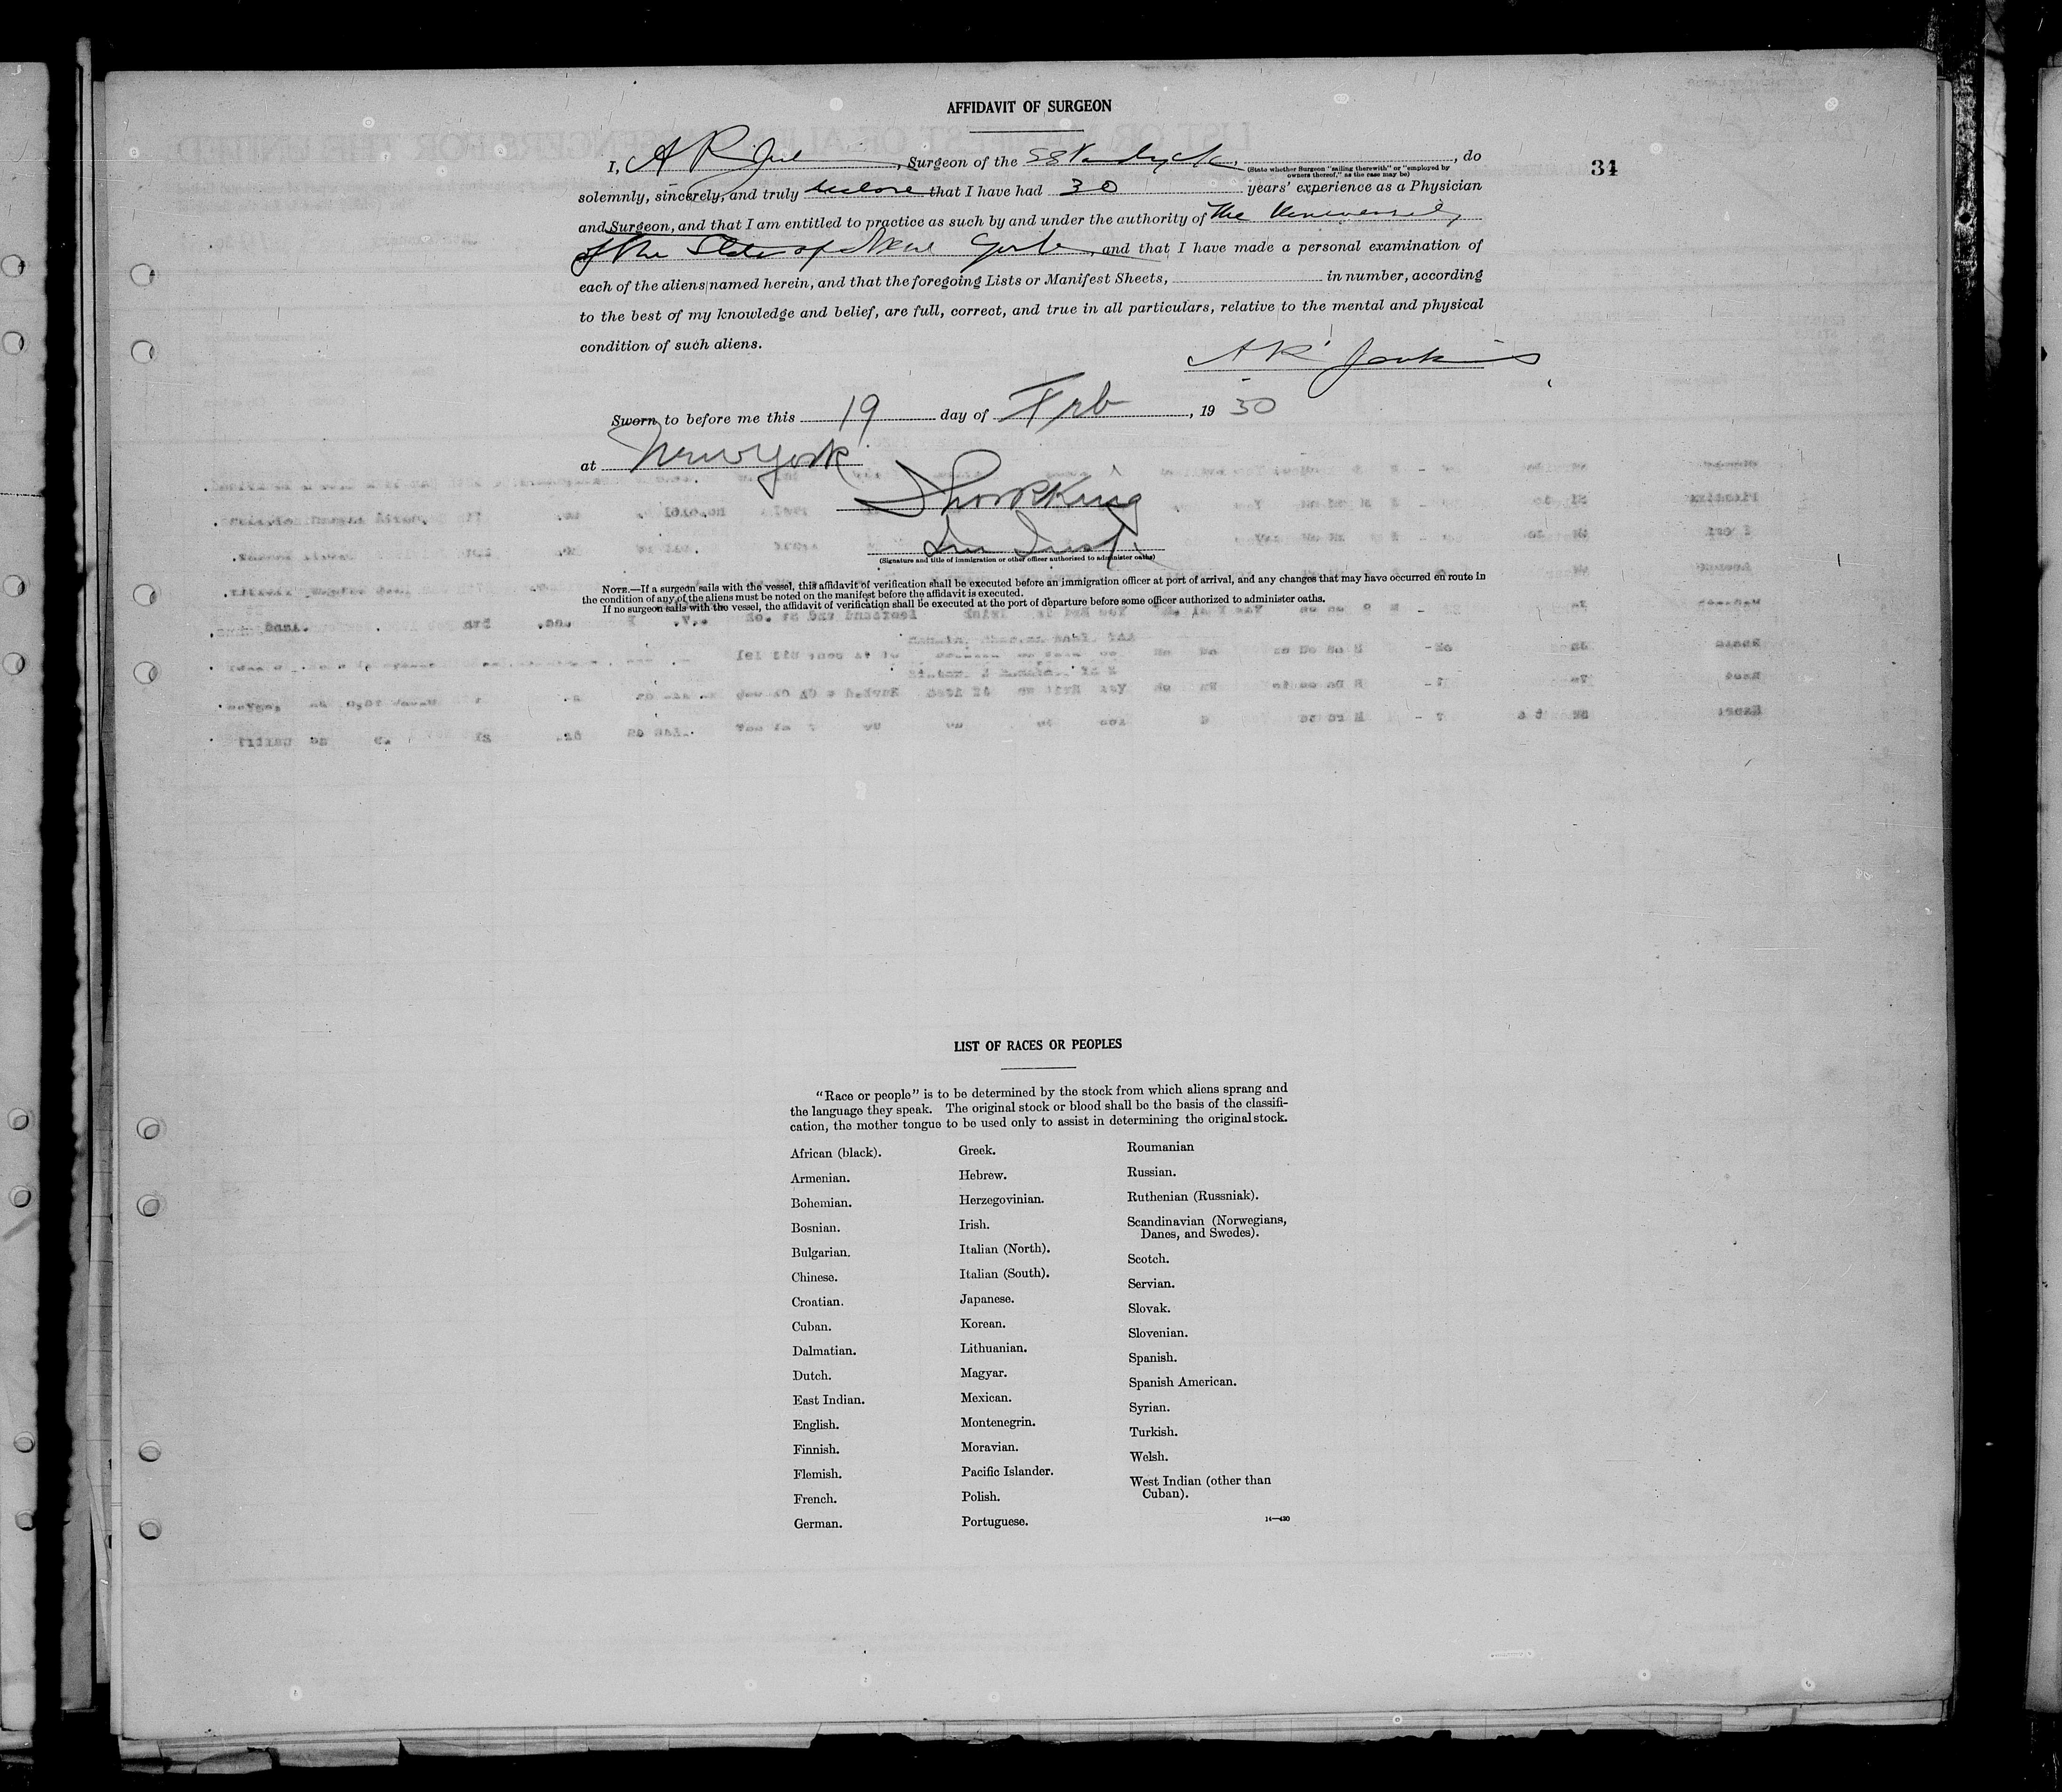 AFFIDAVIT OF SURGEON
34
I, A R, Surgeon of the SS Vandyck, , do
(State whether Surgeon "sailing therewith" or "employed by
owners thereof," as the case may be)
solemnly, sincerely, and truly declare that I have had 30 years' experience as a Physician
and Surgeon, and that I am entitled to practice as such by and under the authority of The University
of the State of New York, and that I have made a personal examination of
each of the aliens named herein, and that the foregoing Lists or Manifest Sheets, in number, according
to the best of my knowledge and belief, are full, correct, and true in all particulars, relative to the mental and physical
condition of such aliens.
A R Jenkins
Sworn to before me this 19 day of Feb, 1930
at New York
King
(Signature and title of immigration or other officer authorized to administer oaths)
NOTE.—If a surgeon sails with the vessel, this affidavit of verification shall be executed before an immigration officer at port of arrival, and any changes that may have occurred en route in
the condition of any of the aliens must be noted on the manifest before the affidavit is executed.
If no surgeon sails with the vessel, the affidavit of verification shall be executed at the port of departure before some officer authorized to administer oaths.
LIST OF RACES OR PEOPLES
"Race or people" is to be determined by the stock from which aliens sprang and
the language they speak. The original stock or blood shall be the basis of the classifi-
cation, the mother tongue to be used only to assist in determining the original stock.
African (black).
Armenian.
Bohemian.
Bosnian.
Bulgarian.
Chinese.
Croatian.
Cuban.
Dalmatian.
Dutch.
East Indian.
English.
Finnish.
Flemish.
French.
German.
Greek.
Hebrew.
Herzegovinian.
Irish.
Italian (North).
Italian (South).
Japanese.
Korean.
Lithuanian.
Magyar.
Mexican.
Montenegrin.
Moravian.
Pacific Islander.
Polish.
Portuguese.
Roumanian
Russian.
Ruthenian (Russniak).
Scandinavian (Norwegians,
Danes, and Swedes).
Scotch.
Servian.
Slovak.
Slovenian.
Spanish.
Spanish American.
Syrian.
Turkish.
Welsh.
West Indian (other than
Cuban).
14—430